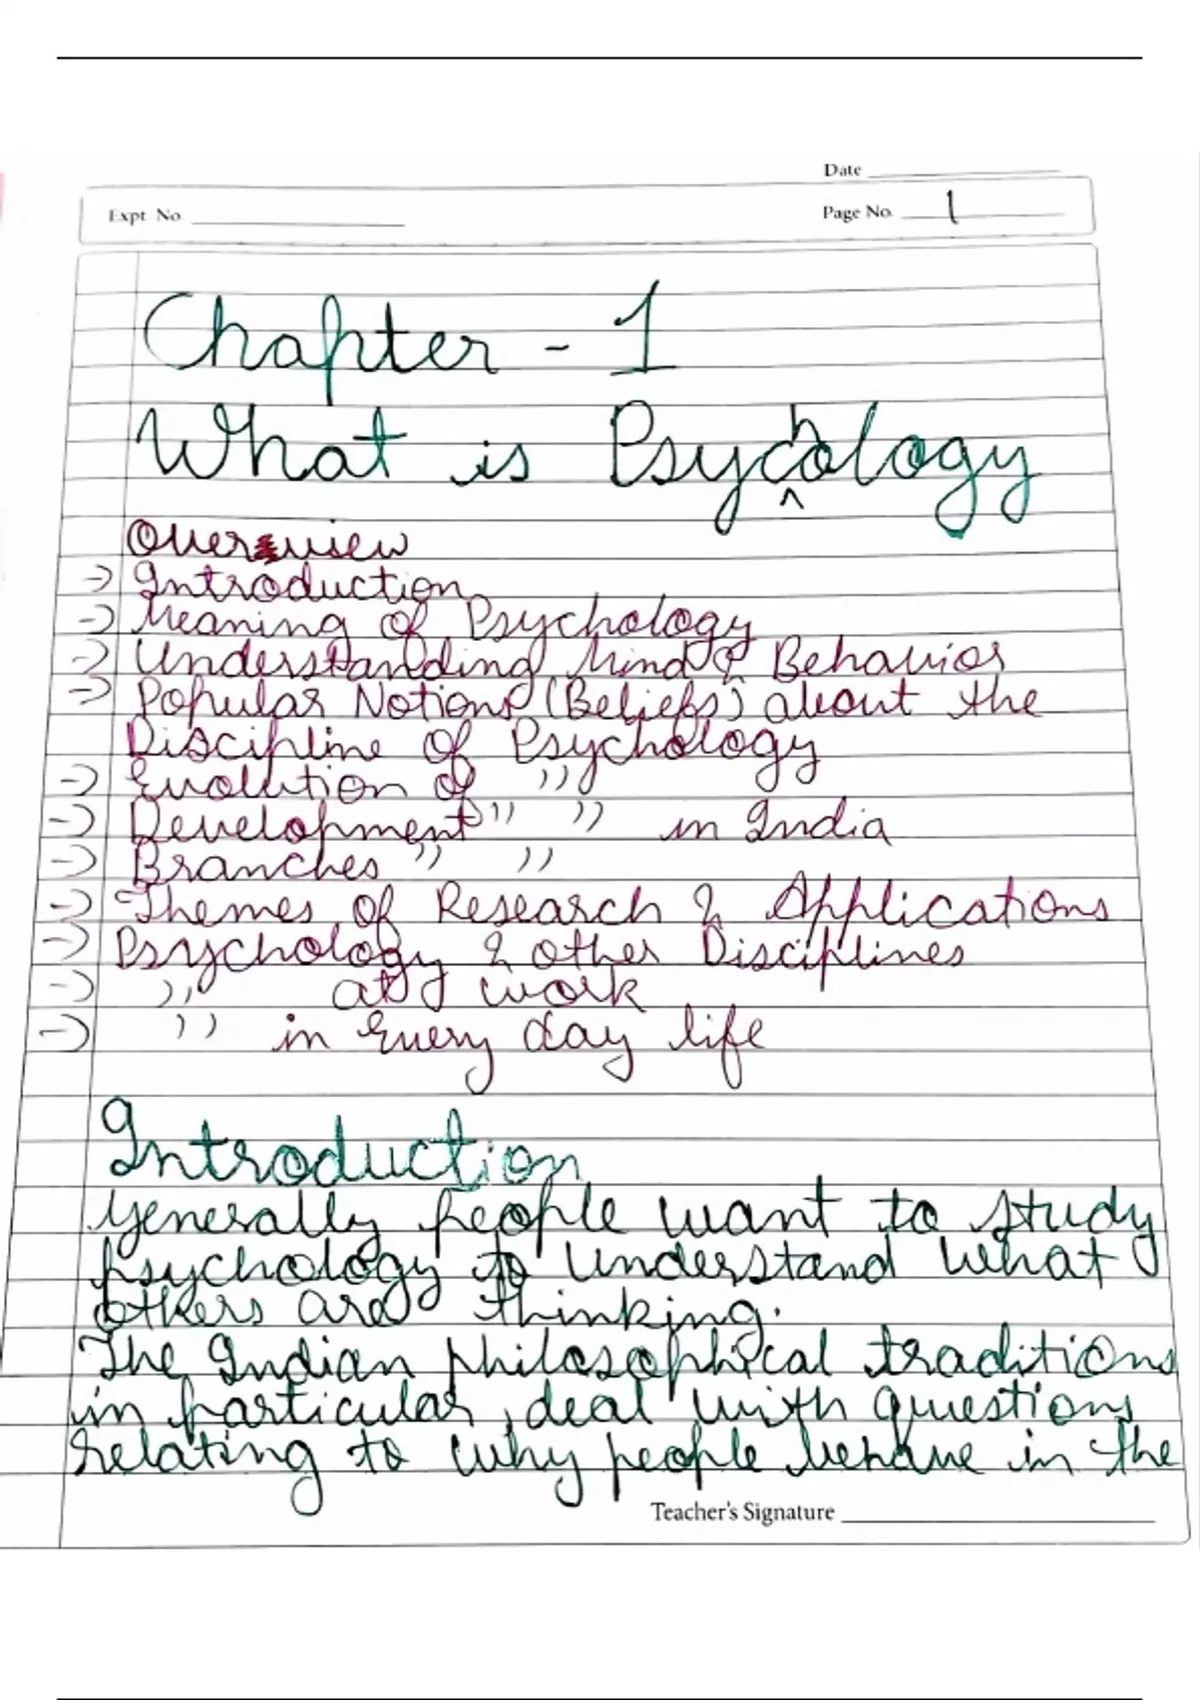 Date
Expt. No.
Page No. 1
Chapter - 1
What is Psychology
Overview
→ Introduction
→ Meaning of Psychology
→ Understanding Mind & Behavior
→ Popular Notions (Beliefs) about the
Discipline of Psychology
→ Evolution of ''
→ Development '' '' in India
→ Branches '' ''
→ Themes of Research & Applications
→ Psychology & other Disciplines
→ '' at work
→ '' in Every day life
Introduction
Generally people want to study
psychology to understand what
others are thinking.
The Indian philosophical traditions
in particular, deal with questions
relating to why people behave in the
Teacher's Signature